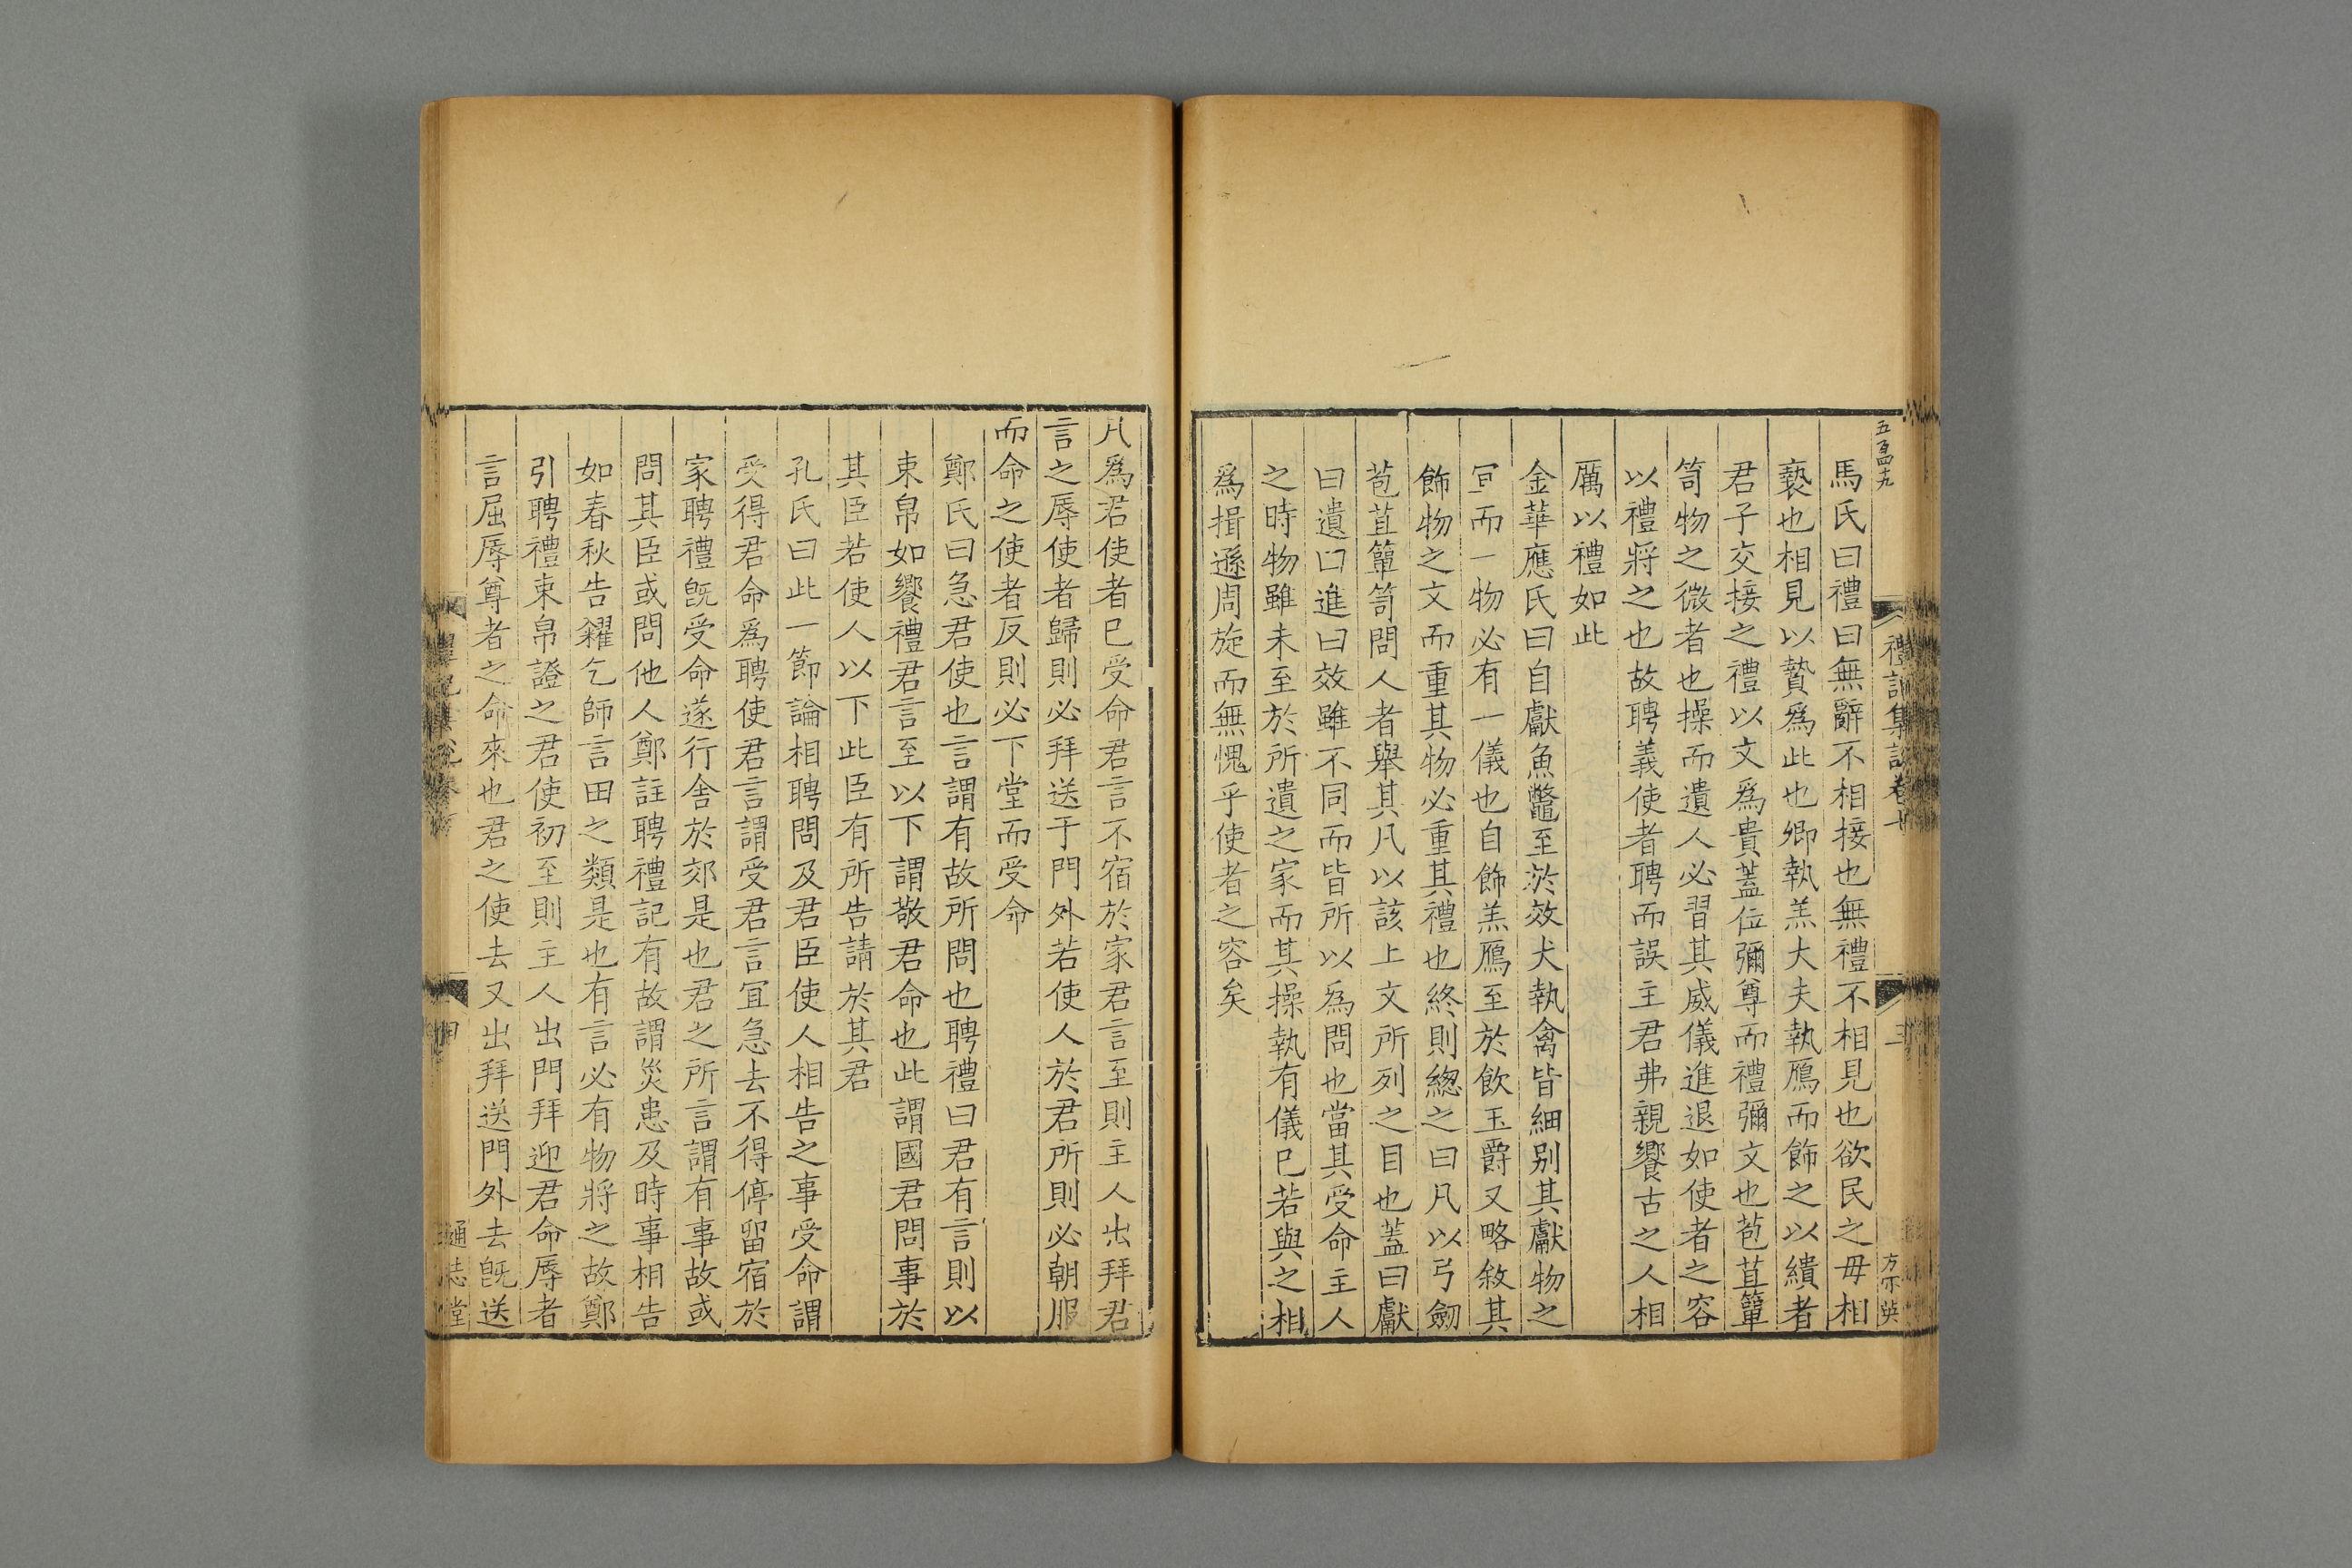 五百四十九
禮記集說卷十
三
馬氏曰禮曰無辭不相接也無禮不相見也欲民之毋相
褻也相見以贄爲此也卿執羔大夫執鴈而飾之以繢者
君子交接之禮以文爲貴蓋位彌尊而禮彌文也苞苴簞
笥物之微者也操而遺人必習其威儀進退如使者之容
以禮將之也故聘義使者聘而誤主君弗親饗古之人相
厲以禮如此
金華應氏曰自獻魚鼈至於效犬執禽皆細别其獻物之
冝而一物必有一儀也自飾羔鴈至於飲玉爵又略敘其
飾物之文而重其物必重其禮也終則緫之曰凡以弓劒
苞苴簞笥問人者舉其凡以該上文所列之目也蓋曰獻
曰遺曰進曰效雖不同而皆所以爲問也當其受命主人
之時物雖未至於所遺之家而其操執有儀巳若與之相
爲揖遜周旋而無愧乎使者之容矣
凡爲君使者巳受命君言不宿於家君言至則主人出拜君
言之辱使者歸則必拜送于門外若使人於君所則必朝服
而命之使者反則必下堂而受命
鄭氏曰急君使也言謂有故所問也聘禮曰君有言則以
束帛如饗禮君言至以下謂敬君命也此謂國君問事於
其臣若使人以下此臣有所告請於其君
孔氏曰此一節論相聘問及君臣使人相告之事受命謂
受得君命爲聘使君言謂受君言冝急去不得停留宿於
家聘禮旣受命遂行舍於郊是也君之所言謂有事故或
問其臣或問他人鄭註聘禮記有故謂災患及時事相告
如春秋告糴乞師言田之類是也有言必有物將之故鄭
引聘禮束帛證之君使初至則主人出門拜迎君命辱者
言屈辱尊者之命來也君之使去又出拜送門外去旣送
四
通志堂